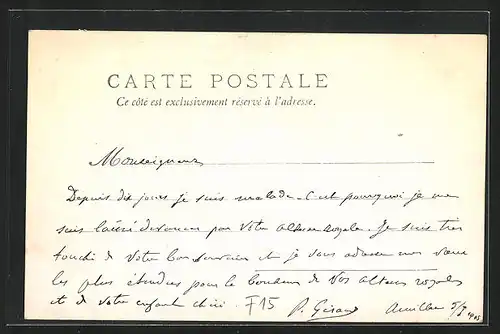 CARTE POSTALE
Ce côté est exclusivement réservé à l'adresse.
Monseigneur
Depuis dix jours je suis malade. C'est pourquoi je me
suis laissé devancer par Votre Altesse Royale. Je suis très
touché de Votre bon souvenir et je vous adresse mes vœux
les plus étendus pour le bonheur de Vos Altesses royales
et de votre enfant chéri. F15 P. Girau 5/7